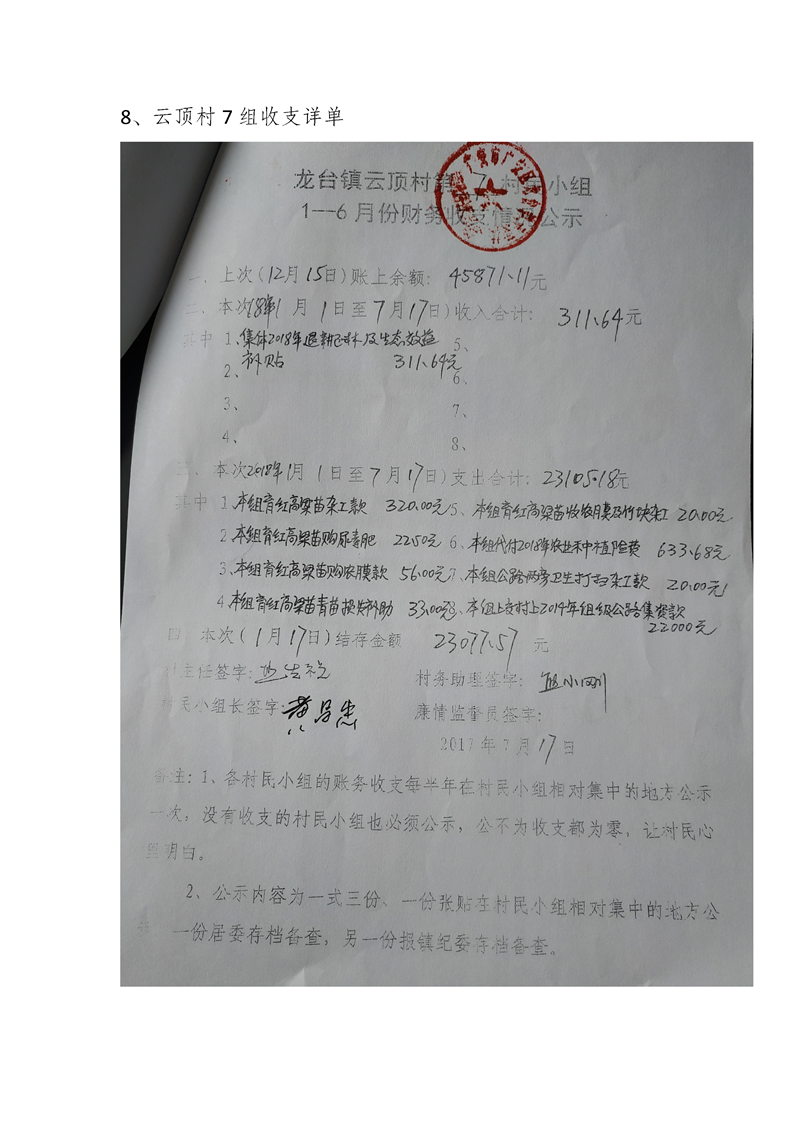 8、云顶村 7 组收支详单
龙台镇云顶村第 7 村民小组
1--6 月份财务收支情况公示
一、上次(12月15日)账上余额: 45871.11元
二、本次18年1 月 1日至7月17日)收入合计: 311.64元
其中 1、集体2018年退耕还林及生态效益 5、
补贴 311.64元
2、 6、
3、 7、
4、 8、
三、本次2018年1月 1日至7月17日)支出合计: 23105.18元
其中 1、本组育红高粱苗杂工款 320.00元 5、本组育红高粱苗收农膜及竹块杂工 20.00元
2、本组育红高粱苗购尿素肥 22.50元 6、本组代付2018年农业种植险费 633.68元
3、本组育红高粱苗购农膜款 56.00元 7、本组公路两旁卫生打扫杂工款 20.00元
4、本组育红高粱苗青苗损失补助 33.00元 8、本组上交村上2014年组级公路集资款
22000元
四、本次(1月17日)结存金额 23077.57 元
村主任签字:
村务助理签字: 小刚
村民小组长签字: 黄昌忠
廉情监督员签字:
2017年7月17日
备注:1、各村民小组的账务收支每半年在村民小组相对集中的地方公示
一次;没有收支的村民小组也必须公示,公不为收支都为零,让村民心
里明白。
2、公示内容为一式三份、一份张贴在村民小组相对集中的地方公
一份居委存档备查,另一份报镇纪委存档备查。